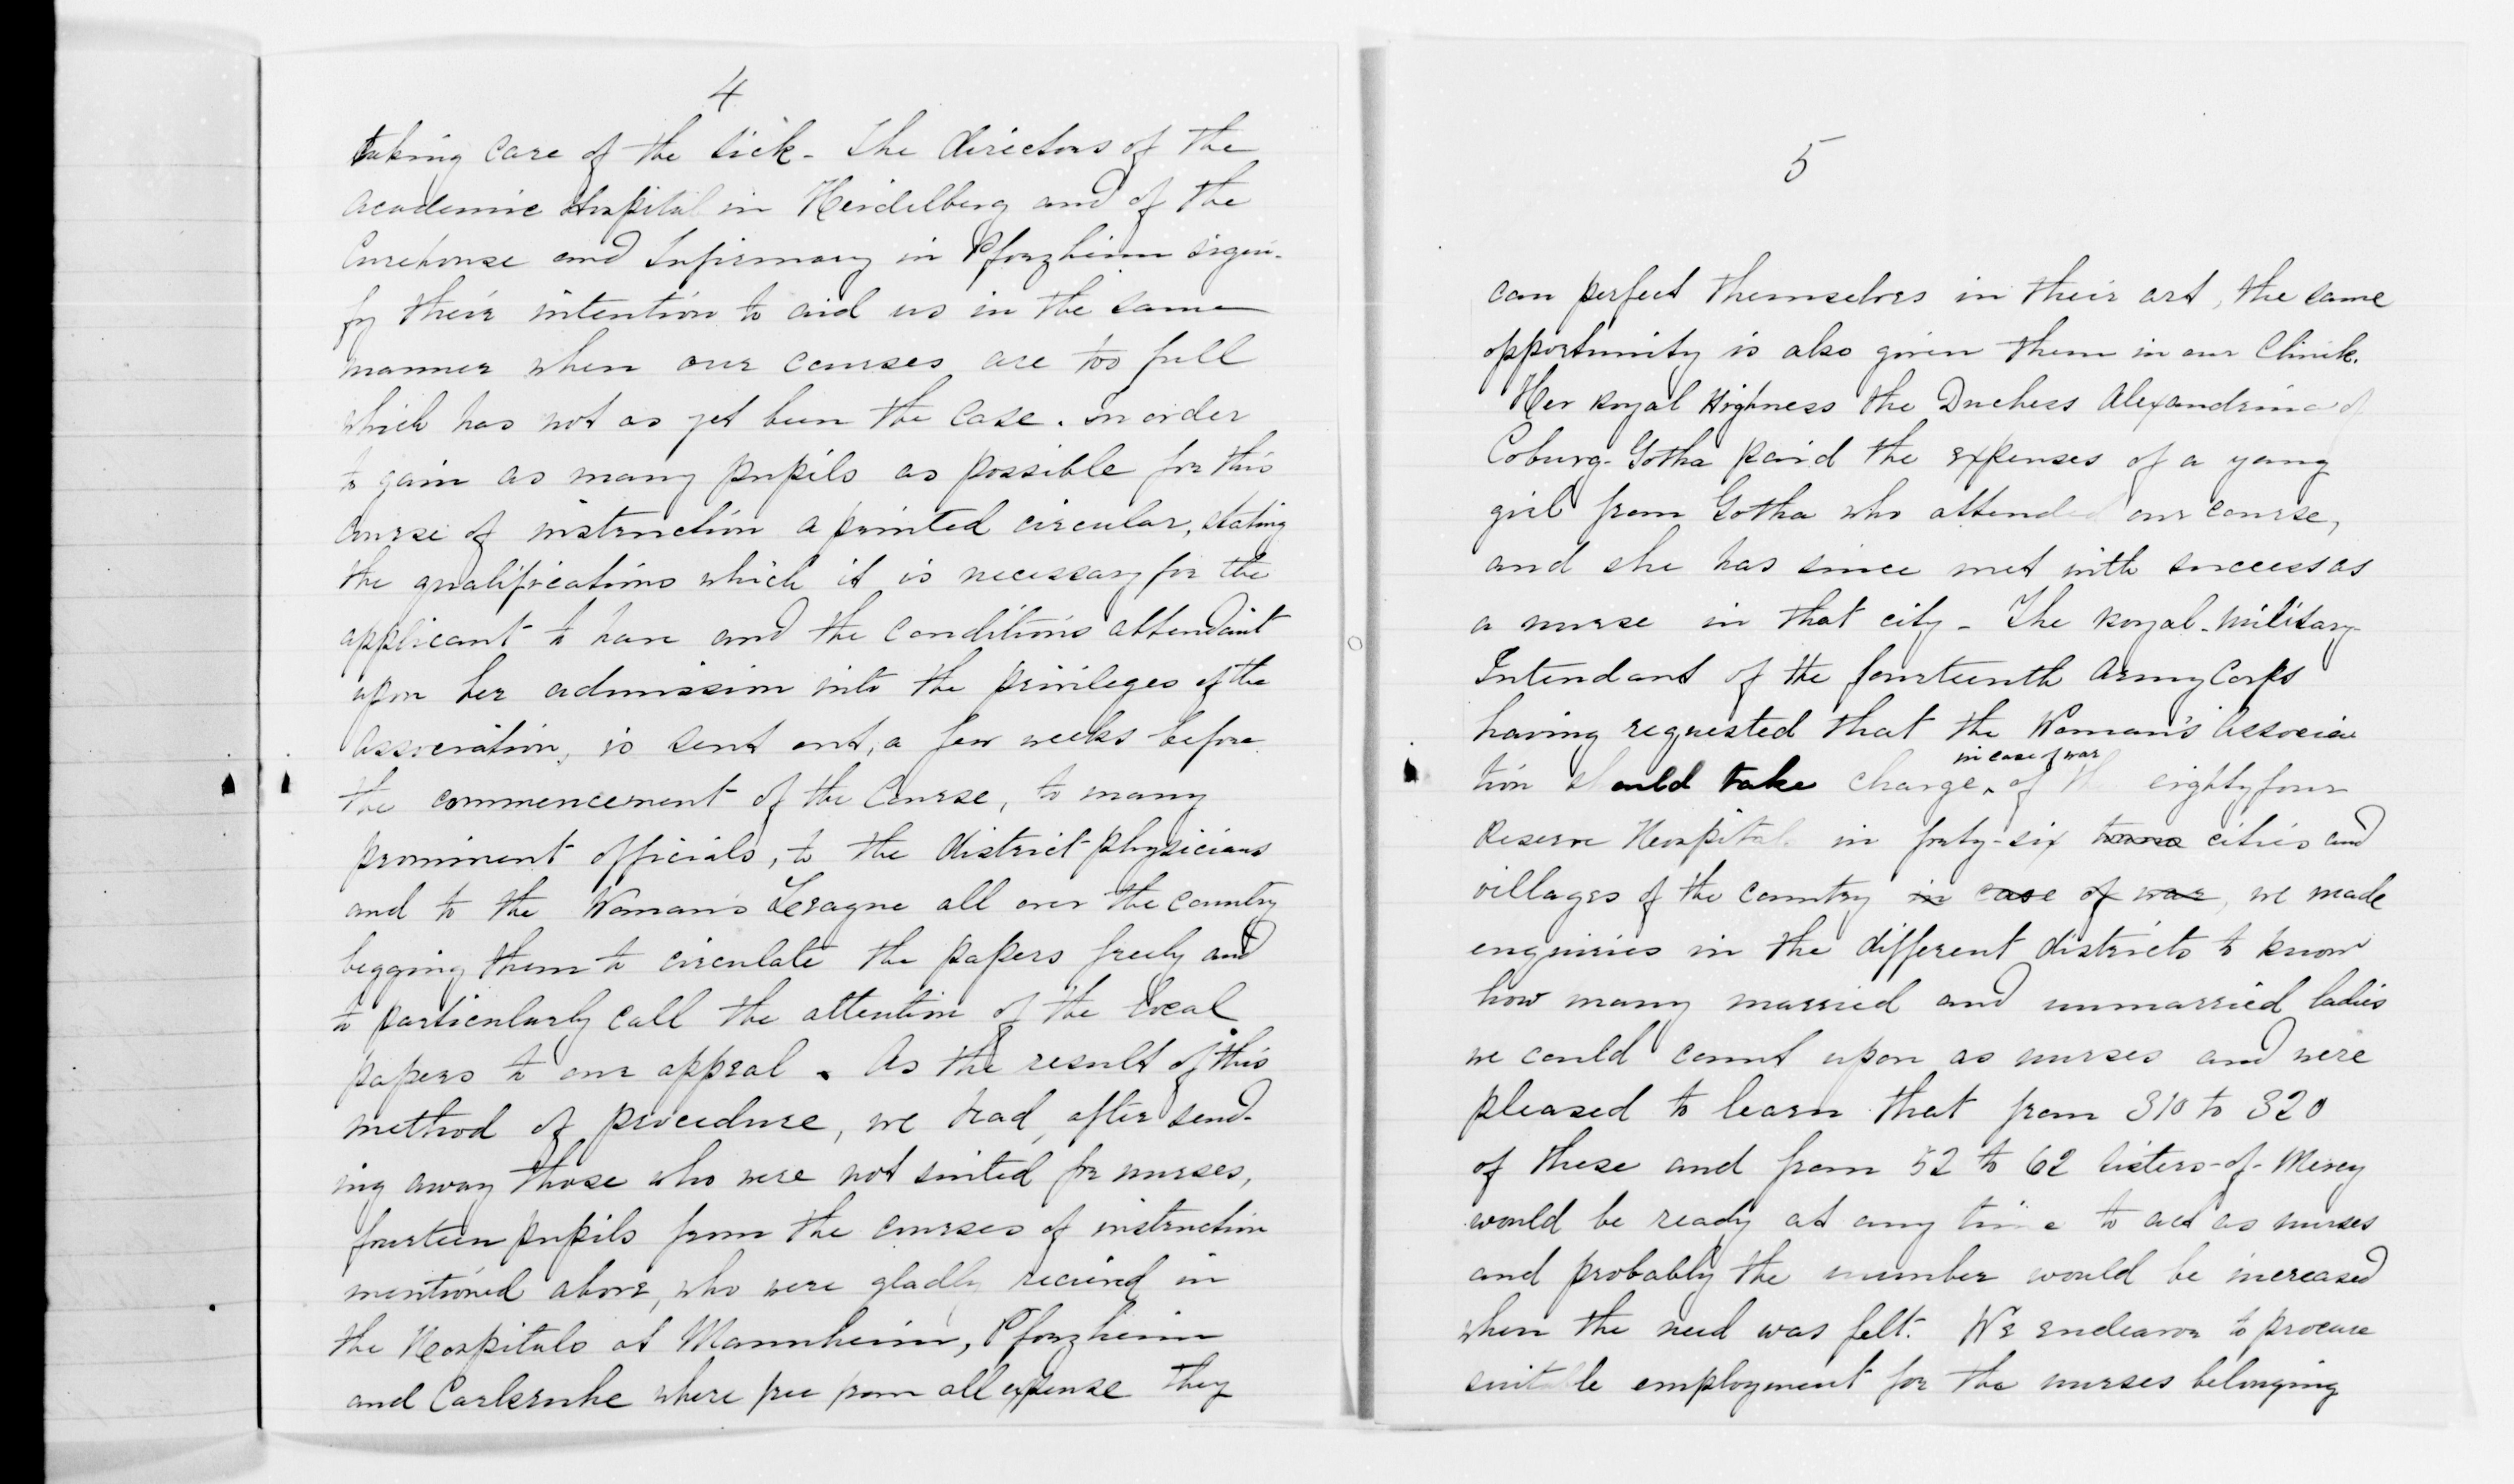 4
taking care of the sick - The directors of the
Academic Hospital in Heidelberg and of the
Curehouse and Infirmary in Pforzheim signi-
fy their intention to aid us in the same
manner when our courses are too full
which has not as yet been the case. In order
to gain as many pupils as possible for this
course of instruction a printed circular, stating
the qualifications which it is necessary for the
applicant to have and the conditions attendant
upon her admission into the privileges of the
Association, is sent out, a few weeks before
the commencement of the Course, to many
prominent officials, to the district-physicians
and to the Woman's League all over the country
begging them to circulate the papers freely and
to particularly call the attention of the local
papers to our appeal. As the result of this
method of procedure, we had, after send-
ing away those who were not suited for nurses,
fourteen pupils from the courses of instruction
mentioned above, who were gladly recieved in
the Hospitals at Mannheim, Pforzheim
and Carlsruhe where free from all expense they
5
can perfect themselves in their art, the same
opportunity is also given them in our Clinik.
Her Royal Highness the Duchess Alexandrina of
Coburg-Gotha paid the expenses of a young
girl from Gotha who attended our course,
and she has since met with success as
a nurse in that city - The Royal-Military-
Intendant of the fourteenth Army Corps
having requested that the Woman's Associa
in case of war
tion should take charge of the eighty four
Reserve Hospitals in forty-six towns cities and
villages of the country in case of war, we made
enquiries in the different districts to know
how many married and unmarried ladies
we could count upon as nurses and were
pleased to learn that from 310 to 320
of these and from 52 to 62 Sisters-of-Mercy
would be ready at any time to act as nurses
and probably the number would be increased
when the need was felt. We endeavor to procure
suitable employment for the nurses belonging